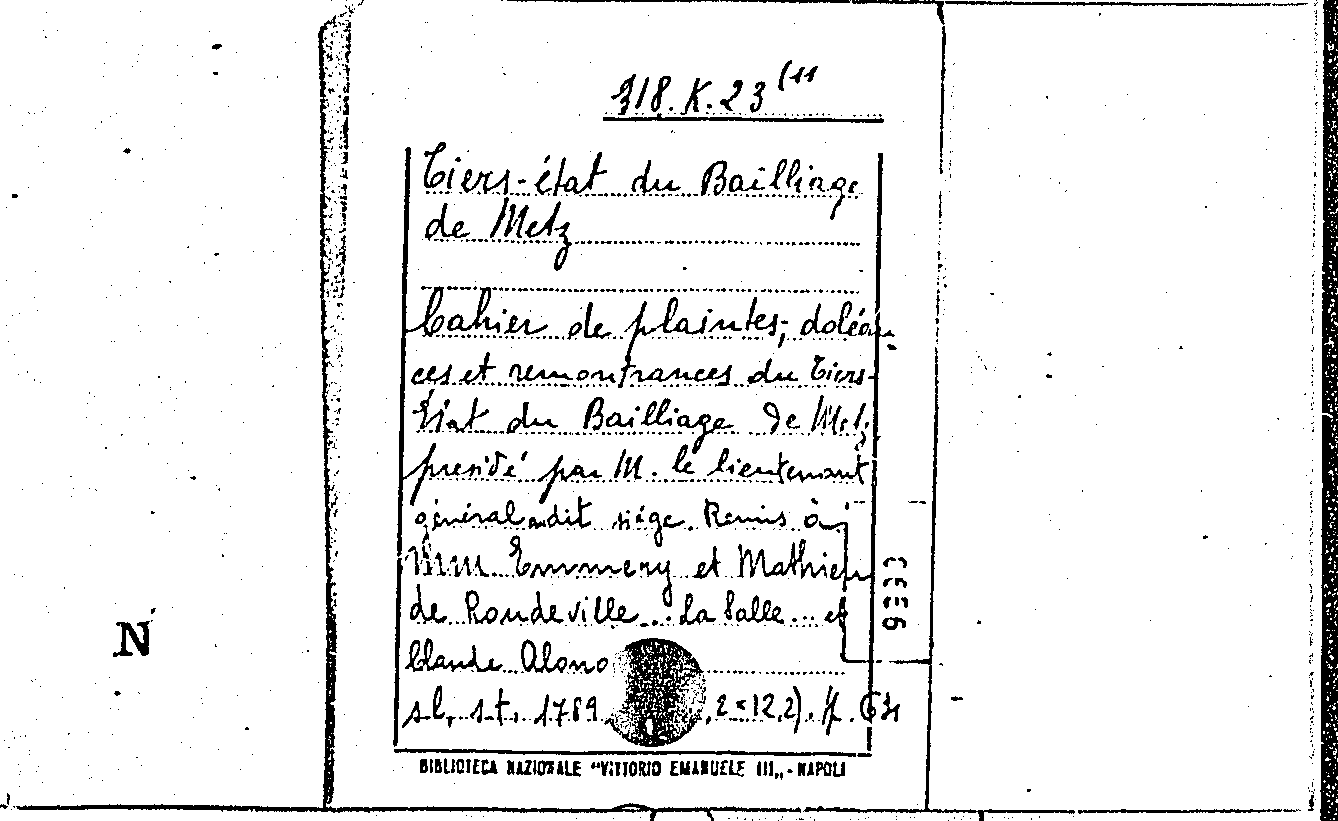 318.K.23(11
Tiers-état du Bailliage
de Metz
Cahier de plaintes, doléan
ces et remontrances du Tiers-
Etat du Bailliage de Metz
présidé par M. le lieutenant
général audit siége. Remis à
MM. Emmery et Mathieu
de Rondeville... La Salle... et
Claude Alono
s.l., s.t., 1789, ,2×12,2). p. 64
BIBLIOTECA NAZIONALE "VITTORIO EMANUELE III„ - NAPOLI
N